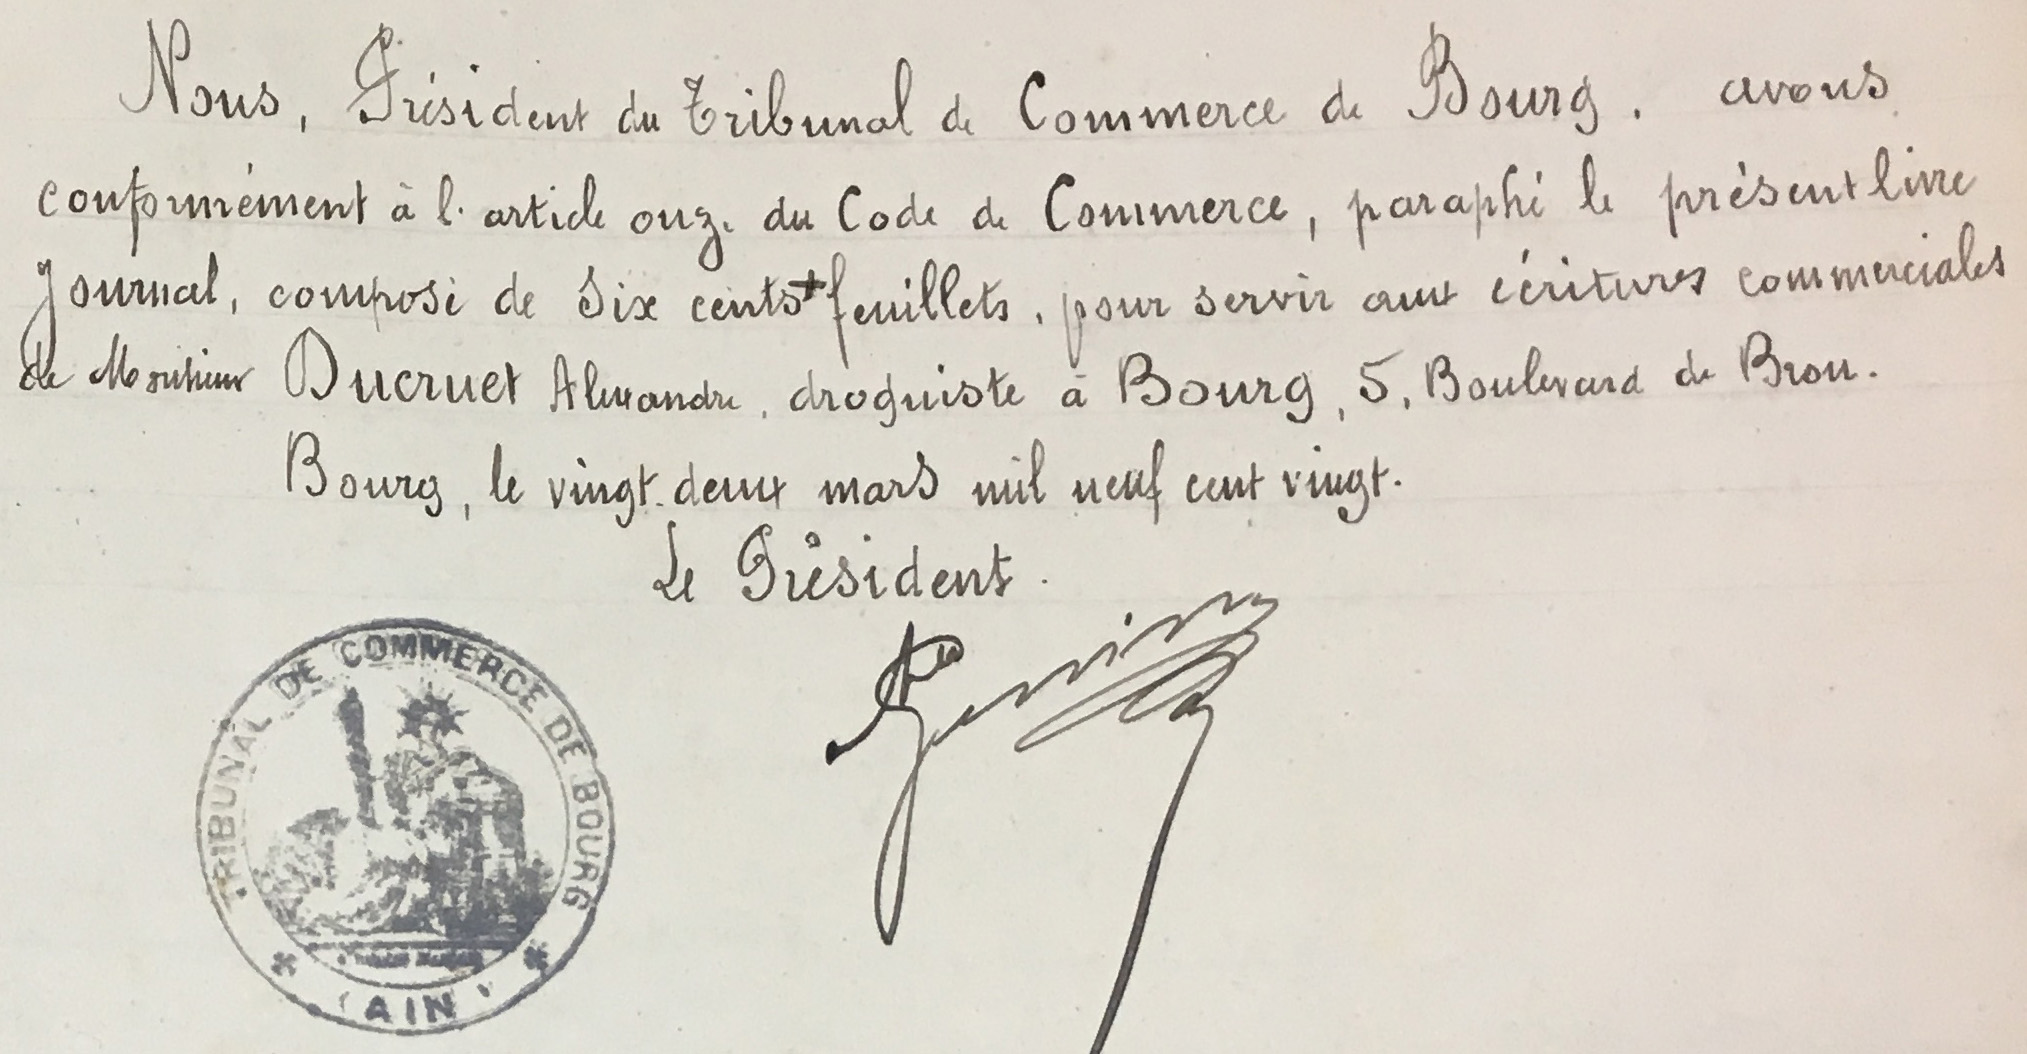 Nous, Président du Tribunal de Commerce de Bourg, avons
conformément à l'article onze du Code de Commerce, paraphé le présent livre
Journal, composé de Six cents + feuillets, pour servir aux écritures commerciales
de Monsieur Ducruet Alexandre, droguiste à Bourg, 5, Boulevard de Brou.
Bourg, le vingt-deux mars mil neuf cent vingt.
Le Président.
TRIBUNAL DE COMMERCE DE BOURG
(AIN)